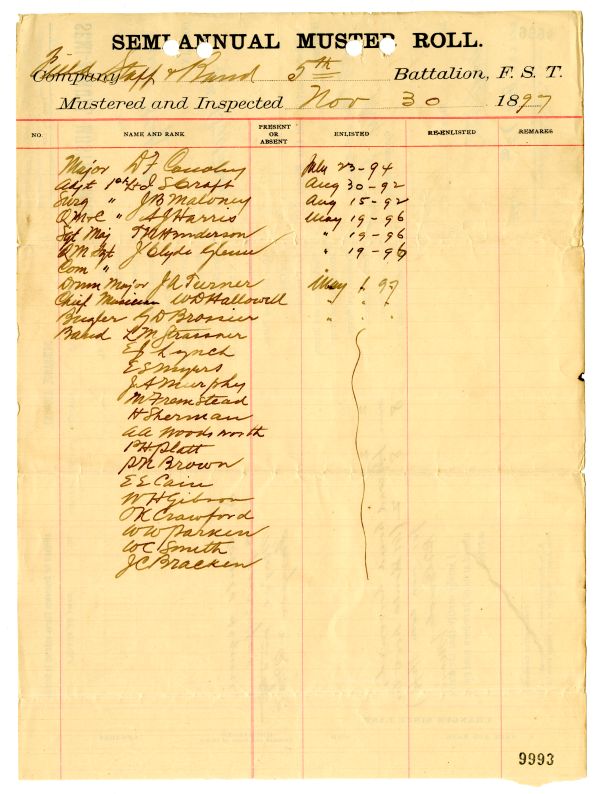 SEMI-ANNUAL MUSTER ROLL.
Field Staff & Band Company 5th Battalion, F. S. T.
Mustered and Inspected Nov 30 1897
NO. NAME AND RANK PRESENT OR ABSENT ENLISTED RE-ENLISTED REMARKS
Major D F 23-94
Adjt 1st Lt J S Craft Aug 30-92
Surg " J B Maloney Aug 15-92
Q M & C " A J Harris May 19-96
Sgt Maj T N Henderson " 19-96
Q M Sgt J Clyde " 19-96
Com "
Drum Major J A Turner May 1 97
Chief Musician W D Hallowell " " "
Bugler G D Brossier " " "
Band L M Strassner
E J Lynch
E S Myers
J A Murphy
M Fremstead
H Sherman
A A Woodsworth
P H Platt
P N Brown
E E Cain
W H Gibson
O K Crawford
W W Parken
W C Smith
J C Bracken
9993